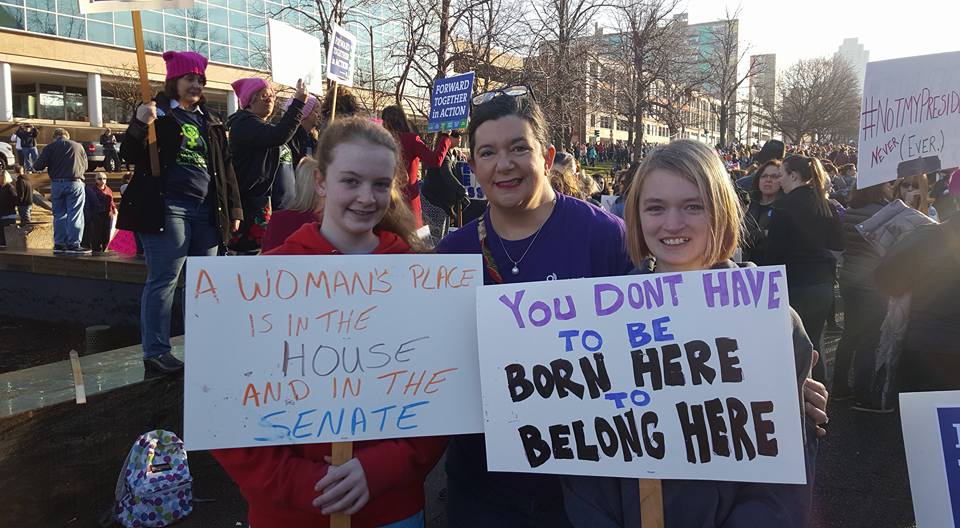 FORWARD
TOGETHER
in ACTION
FORWARD
TOGETHER
in ACTION
#NOTMYPRESID
NEVER (EVER.)
A WOMAN'S PLACE
IS IN THE
HOUSE
AND IN THE
SENATE
YOU DONT HAVE
TO BE
BORN HERE
TO
BELONG HERE